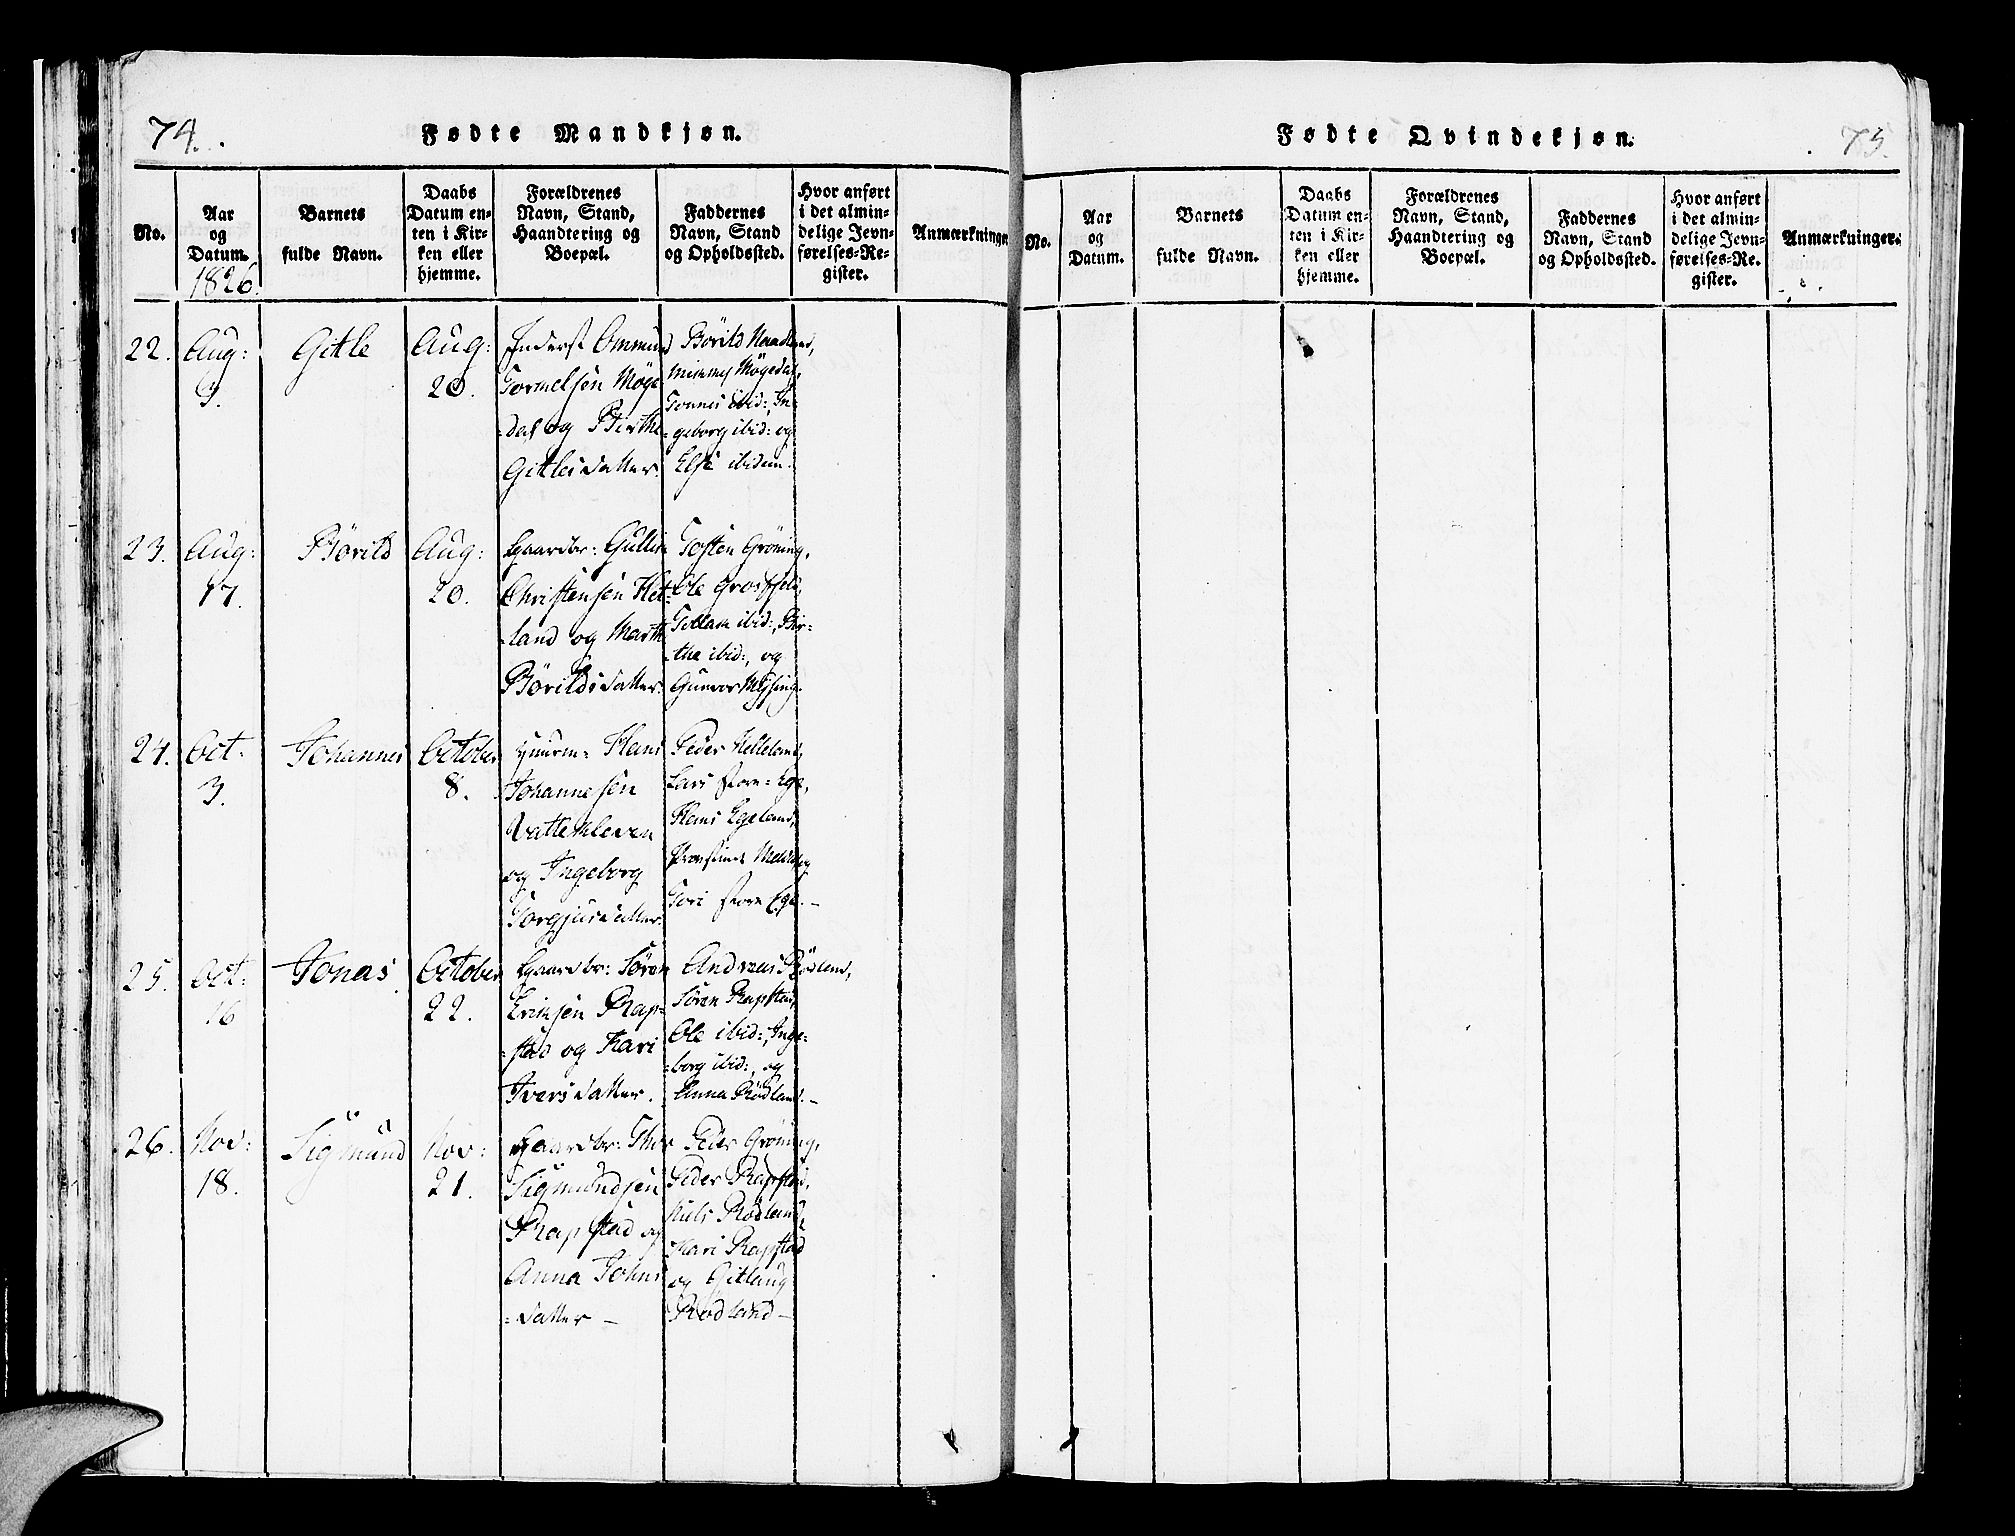 74.
Fødte Mandkjøn.
No.
Aar og Datum.
1826.
Barnets fulde Navn.
Daabs Datum en-
ten i Kir-
ken eller
hjemme.
Forældrenes
Navn, Stand,
Haandtering og
Boepæl.
Faddernes
Navn, Stand
og Opholdssted.
Hvor anført
i det almin-
delige Jevn-
førelses-Re-
gister.
Anmærkninger
22.
Aug:
3.
Gitle
Aug:
20.
Inderst Ommund
Tormelsen Möge
-dal og Birthe
Gitlesdatter.
Börild Haadland,
Mögedal,
Tonnes ibid:, In-
-geborg ibid: og
Else ibidem.
23.
Aug:
17.
Börild
Aug:
20.
Gaardbr: Gullik
Christensen Het-
-land og Marthe
Börildsdatter.
Tosten Gröning,
Ole Grosfjeld,
ibid:, Bir-
-the ibid:, og
Gunvor Myssing.
24.
Oct:
3.
Johannes
October
8.
Huusm: Hans
Johannesen
Vattekleven
og Ingeborg
Torgjusdatter.
Peder Helleland,
Lars Store-Ege,
Hans Egeland,
og
Tori Store Ege.-
25.
Oct:
16
Jonas
October
22.
Gaardbr: Sören
Eriksen Rap-
-stad og Kari
Iversdatter.
Andreas Rödland,
Sören Rapstad,
Ole ibid:, Inge-
-borg ibid:, og
Anna Rödland.-
26.
Nov:
18.
Sigmund
Nov:
21.
Gaardbr: Thor
Sigmundsen
Rapstad og
Anna Johns
-datter -
Peder Gröning,
Peder Rapstad,
Niels Rödland,
Kari Rapstad
og Gitlaug
Rödland -
Fødte Qvindekjøn.
75.
No.
Aar
og
Datum.
Barnets
fulde Navn.
Daabs
Datum en-
ten i Kir-
ken eller
hjemme.
Forældrenes
Navn, Stand,
Haandtering og
Boepæl.
Faddernes
Navn, Stand
og Opholdssted.
Hvor anført
i det almin-
delige Jevn-
førelses-Re-
gister.
Anmærkninger.